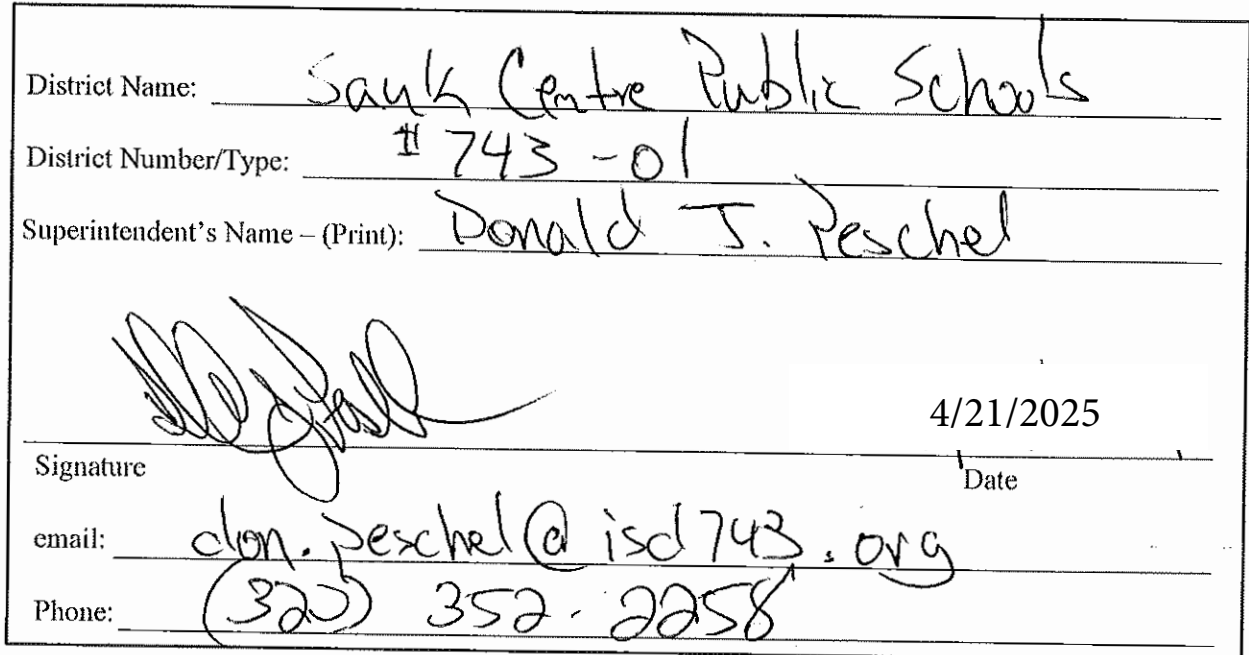 District Name: Sauk Centre Public Schools
District Number/Type: #743-01
Superintendent's Name – (Print): Donald J. Peschel
4/21/2025
Signature Date
email: don.peschel@isd743.org
Phone: (320) 352-2258